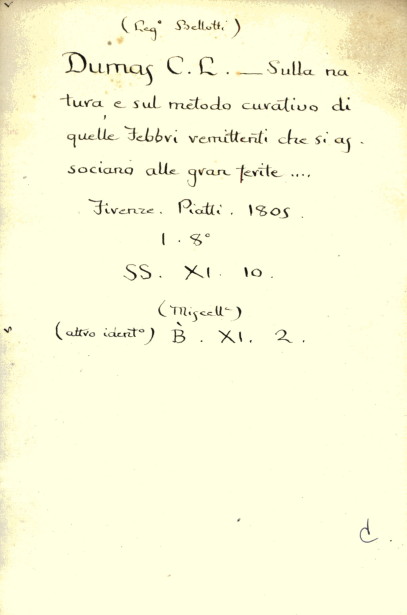 (Leg° Bellotti)
Dumas C. L. — Sulla na
tura e sul metodo curativo di
quelle Febbri remittenti che si as
sociano alle gran ferite ....
Firenze. Piatti. 1805.
1. 8°
SS. XI. 10.
(Miscell^a)
(altro ident°) B. XI. 2.
C.